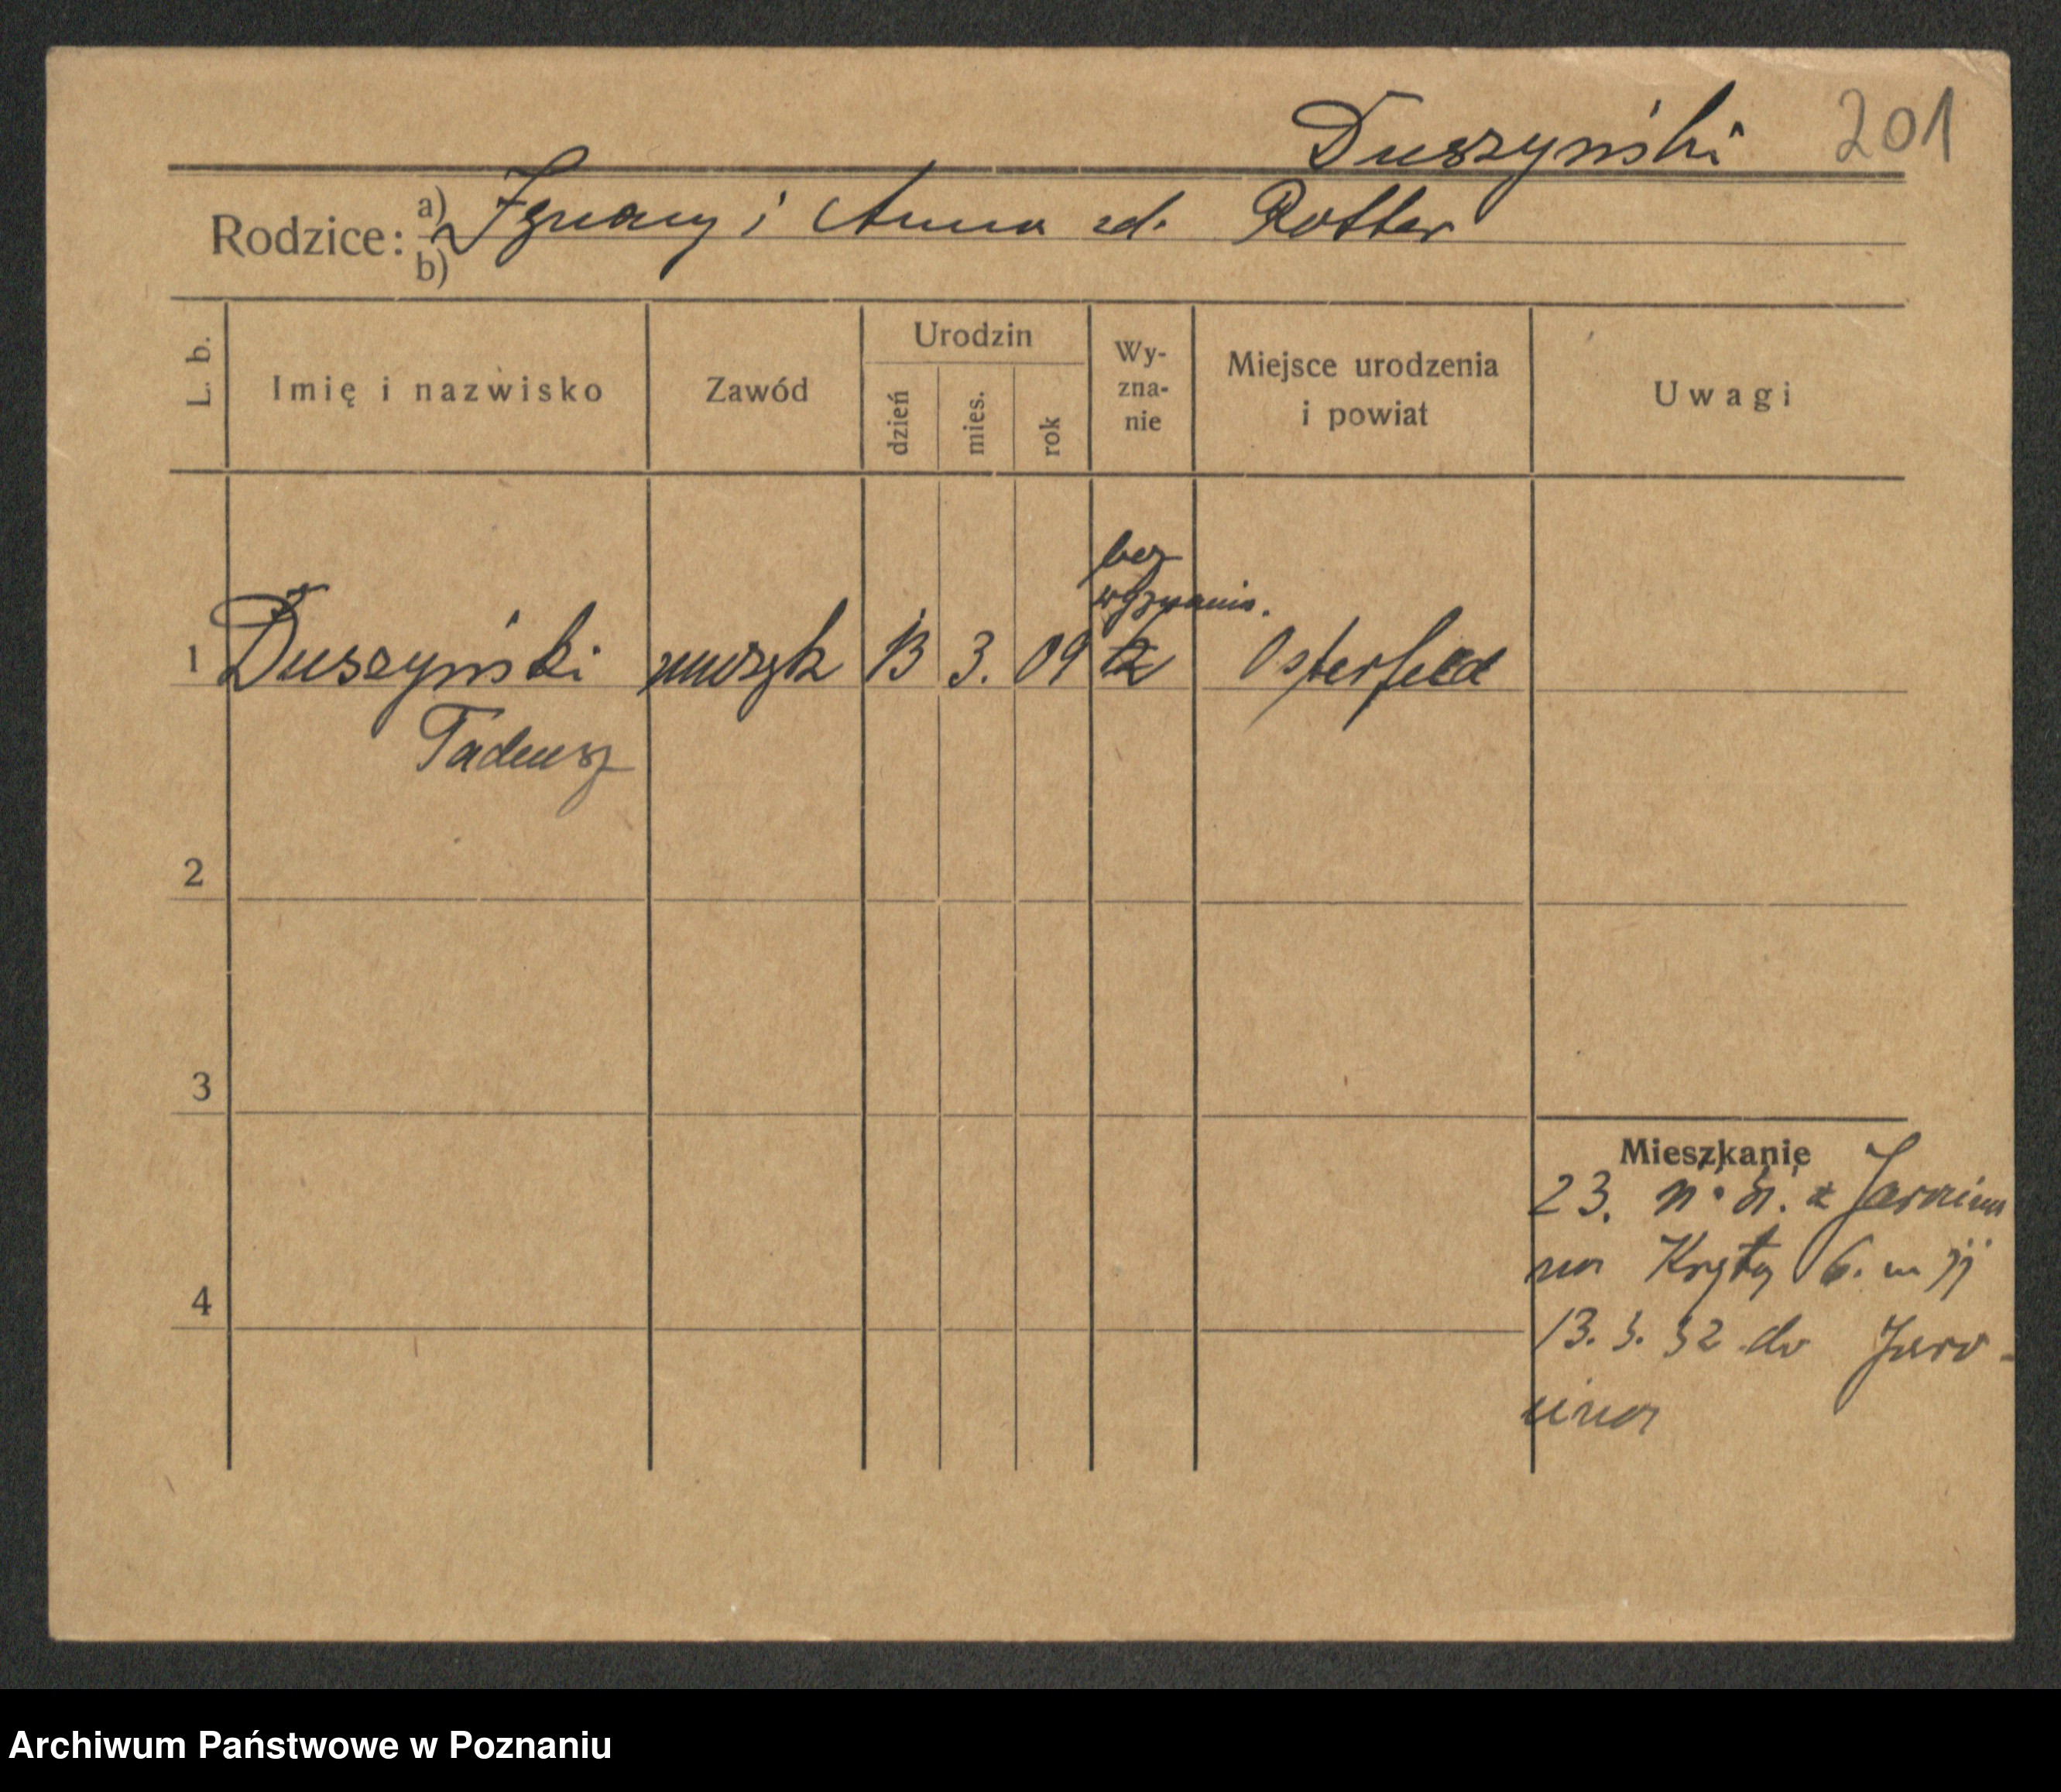 Duszyński 201
Rodzice: a) Ignacy i Anna zd. Rotter
b)
L. b. Imię i nazwisko Zawód Urodzin dzień mies. rok Wy-zna-nie Miejsce urodzenia i powiat Uwagi
bez
wyznania.
1 Duszyński muzyk 13 3. 09 rk Osterfeld
Tadeusz
2
3
Mieszkanie
23. z Jarocina
na 6. m
4
13. 3. 32 do Jaro-
cina
Archiwum Państwowe w Poznaniu